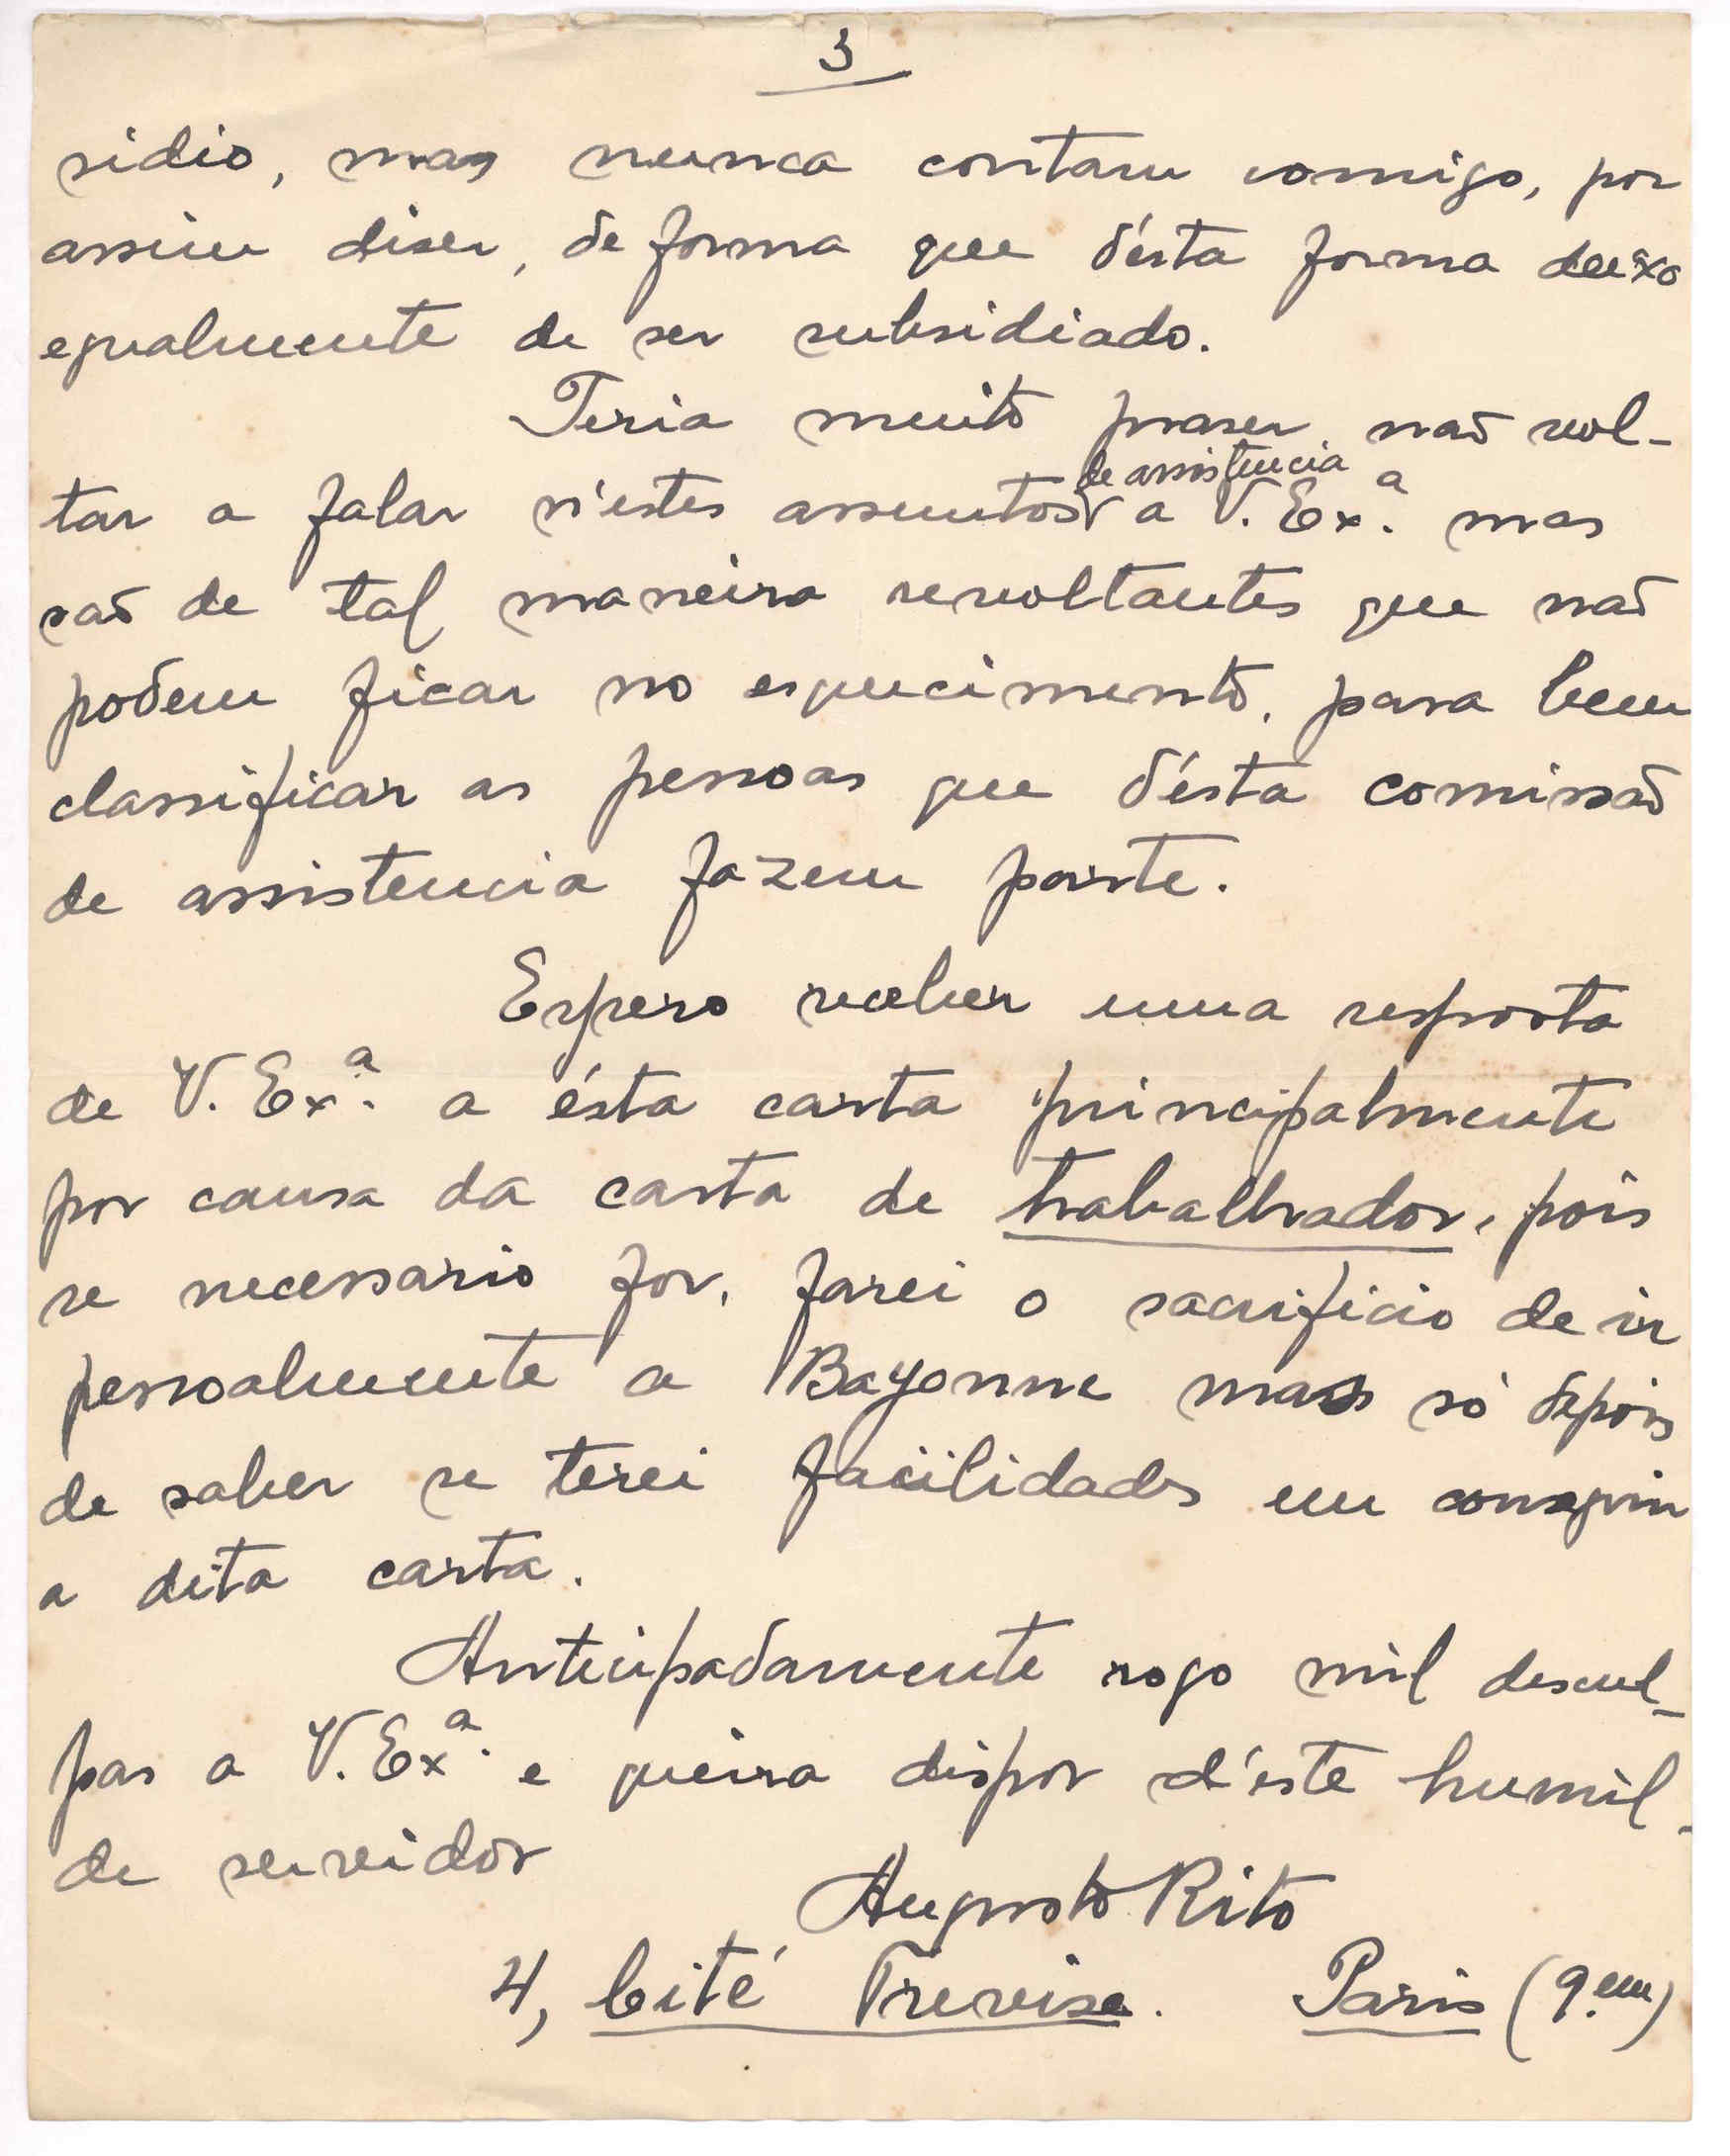 3
sidio, mas nunca contam comigo, por
assim diser, de forma que d'ésta forma deixo
egualmente de ser subsidiado.
Teria muito praser não vol-
tar a falar n'estes assuntos de assistencia a V. Ex.ª mas
são de tal maneira revoltantes que não
podem ficar no esquecimento, para bem
classificar as pessoas que d'ésta comissão
de assistencia fazem parte.
Espero receber uma resposta
de V. Ex.ª a ésta carta principalmente
por causa da carta de trabalhador, pois
se necessario for, farei o sacrificio de ir
pessoalmente a Bayonne mas só depois
de saber se terei facilidades em conseguir
a dita carta.
Anticipadamente rogo mil descul-
pas a V. Ex.ª e queira dispor d'este humil-
de servidor
Augusto Rito
4, Cité Trevise. Paris (9.em)